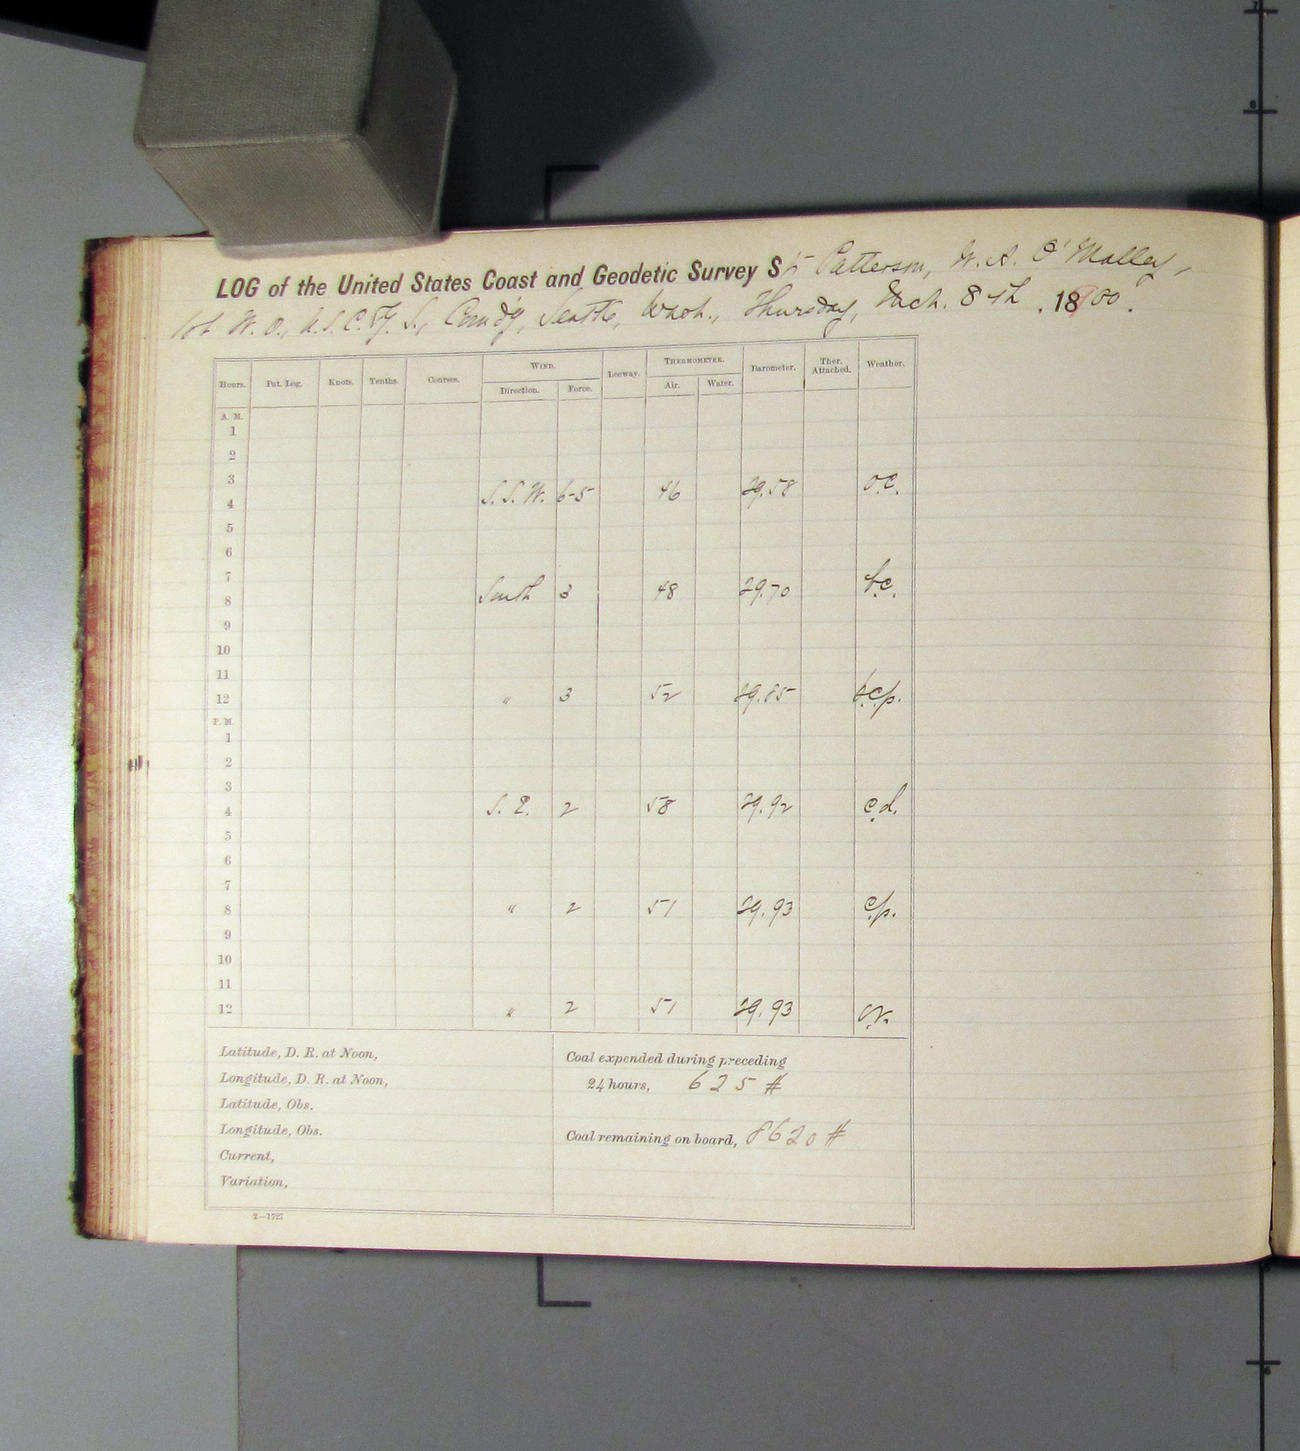 LOG of the United States Coast and Geodetic Survey Str Patterson, W. A. O'Malley,
1st W. O., U.S.C. & G. S., Comd'g, Seattle, Wash., Thursday, Mch. 8th, 1900.
Hours. Pat. Log. Knots. Tenths. Courses. WIND. Direction. Force. Leeway. THERMOMETER. Air. Water. Barometer. Ther. Attached. Weather.
A. M.
1
2
3
4 S.S.W. 6-5 46 29.58 o.c.
5
6
7
8 South 3 48 29.70 b.c.
9
10
11
12 " 3 52 29.85 b.c.p.
P. M.
1
2
3
4 S. E. 2 58 29.92 c.d.
5
6
7
8 " 2 51 29.93 c.p.
9
10
11
12 " 2 51 29.93 o.r.
Latitude, D. R. at Noon,
Longitude, D. R. at Noon,
Latitude, Obs.
Longitude, Obs.
Current,
Variation,
Coal expended during preceding
24 hours, 625 #
Coal remaining on board, 8620 #
2—1727
7
8
6